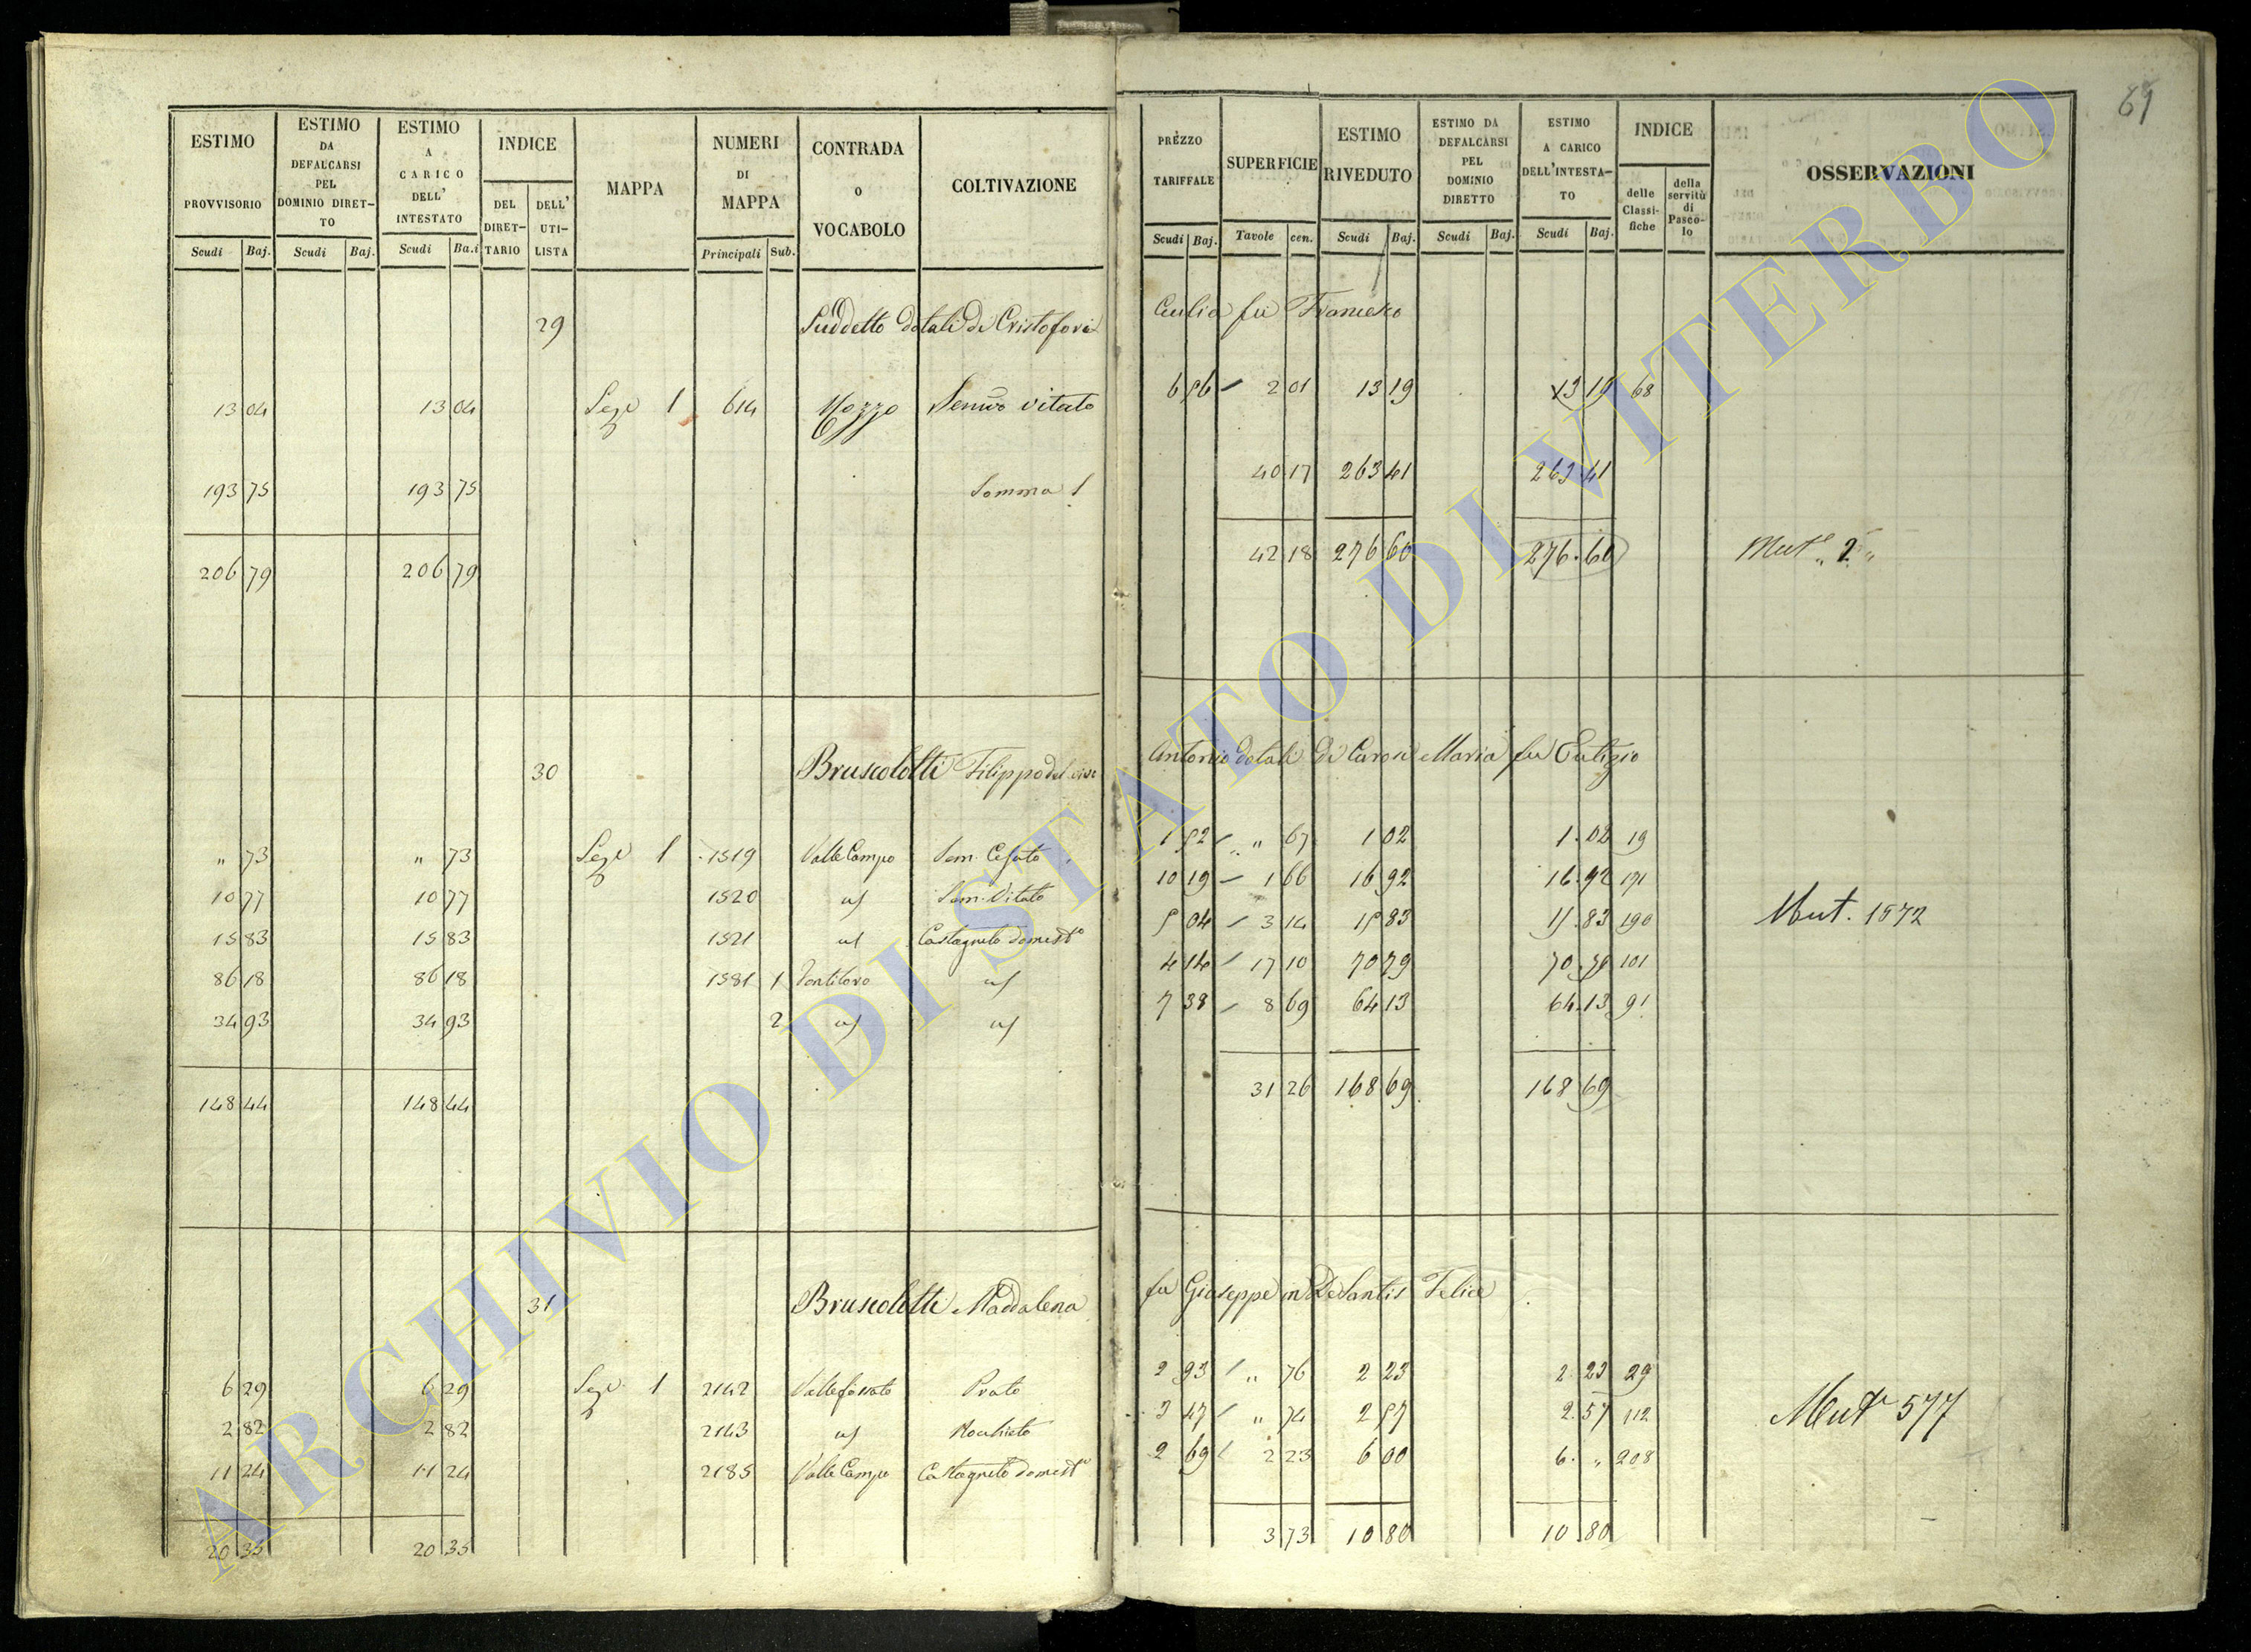 89
ESTIMO PROVVISORIO | ESTIMO DA DEFALCARSI PEL DOMINIO DIRET-TO | ESTIMO A CARICO DELL' INTESTATO | INDICE | MAPPA | NUMERI DI MAPPA | CONTRADA O VOCABOLO | COLTIVAZIONE | PREZZO TARIFFALE | SUPERFICIE | ESTIMO RIVEDUTO | ESTIMO DA DEFALCARSI PEL DOMINIO DIRETTO | ESTIMO A CARICO DELL'INTESTA-TO | INDICE | OSSERVAZIONI
Scudi | Baj. | Scudi | Baj. | Scudi | Ba.i | DEL DIRET-TARIO | DELL' UTI-LISTA | Principali | Sub. | Scudi | Baj. | Tavole | cen. | Scudi | Baj. | Scudi | Baj. | Scudi | Baj. | delle Classi-fiche | della servitù di Pasco-lo
29 Suddetto dotali di Cristofori Giulia fu Francesco
13 04 | 13 04 | Sez.e 1 | 614 | Mozzo | Semi.o vitato | 6 56 | 2 01 | 13 19 | 13 19 | 68
193 75 | 193 75 | Somma | 40 17 | 263 41 | 263 41
206 79 | 206 79 | 42 18 | 276 60 | 276.60 | Mut.e „ 2 „
30 Bruscolotti Filippo del viv.e Antonio dotali di Carosi Maria fu Eutizio
„ 73 | „ 73 | Sez.e 1 | 1519 | Valle Campo | Sem. Cesato | 1 52 | „ 67 | 1 02 | 1.02 | 19
10 77 | 10 77 | 1520 | a/ | Sem. Vitato | 10 19 | 1 66 | 16 92 | 16.92 | 191
15 83 | 15 83 | 1521 | a/ | Castagneto domest.o | 5 04 | 3 14 | 15 83 | 15.83 | 190 | Mut. 1572
86 18 | 86 18 | 1581 | 1 | a/ | 4 14 | 17 10 | 70 79 | 70.79 | 101
34 93 | 34 93 | 2 | a/ | a/ | 7 38 | 8 69 | 64 13 | 64.13 | 91
148 44 | 148 44 | 31 26 | 168 69 | 168 69
31 Bruscolotti Maddalena fu Giuseppe in De Santis Felice
6 29 | 6 29 | Sez.e 1 | 2142 | Valle fossato | Prato | 2 93 | „ 76 | 2 23 | 2 23 | 29
2 82 | 2 82 | 2143 | a/ | Rochieto | 3 47 | „ 74 | 2 57 | 2.57 | 112 | Mut.e 577
11 24 | 11 24 | 2185 | Valle Campo | Castagneto domest.o | 2 69 | 2 23 | 6 00 | 6. „ | 208
20 35 | 20 35 | 3 73 | 10 80 | 10 80
ARCHIVIO DI STATO DI VITERBO